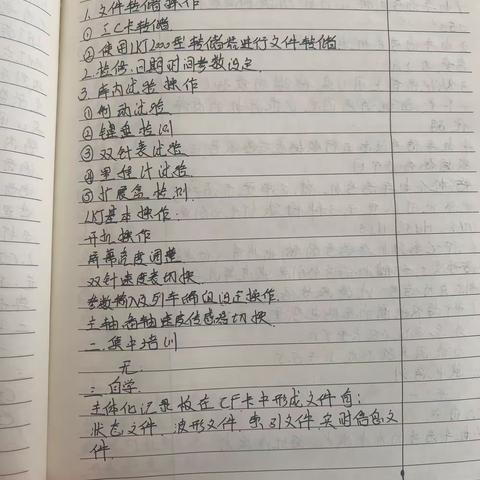 1. 文件转储操作
① IC卡转储
② 使用LKJ2000型转储器进行文件转储.
2. 检修、日期时间参数设定.
3. 库内试验操作
① 制动试验
② 键盘检测
③ 双针表试验
④ 里程计试验
⑤ 扩展盒检测.
LKJ基本操作:
开机操作
屏幕亮度调整
双针速度表切换
参数输入及列车编组设定操作.
主轴、备轴速度传感器切换.
二. 集中培训
无.
三. 自学.
主体化记录板在CF卡中形成文件有:
状态文件. 波形文件. 索引文件. 实时信息文
件.